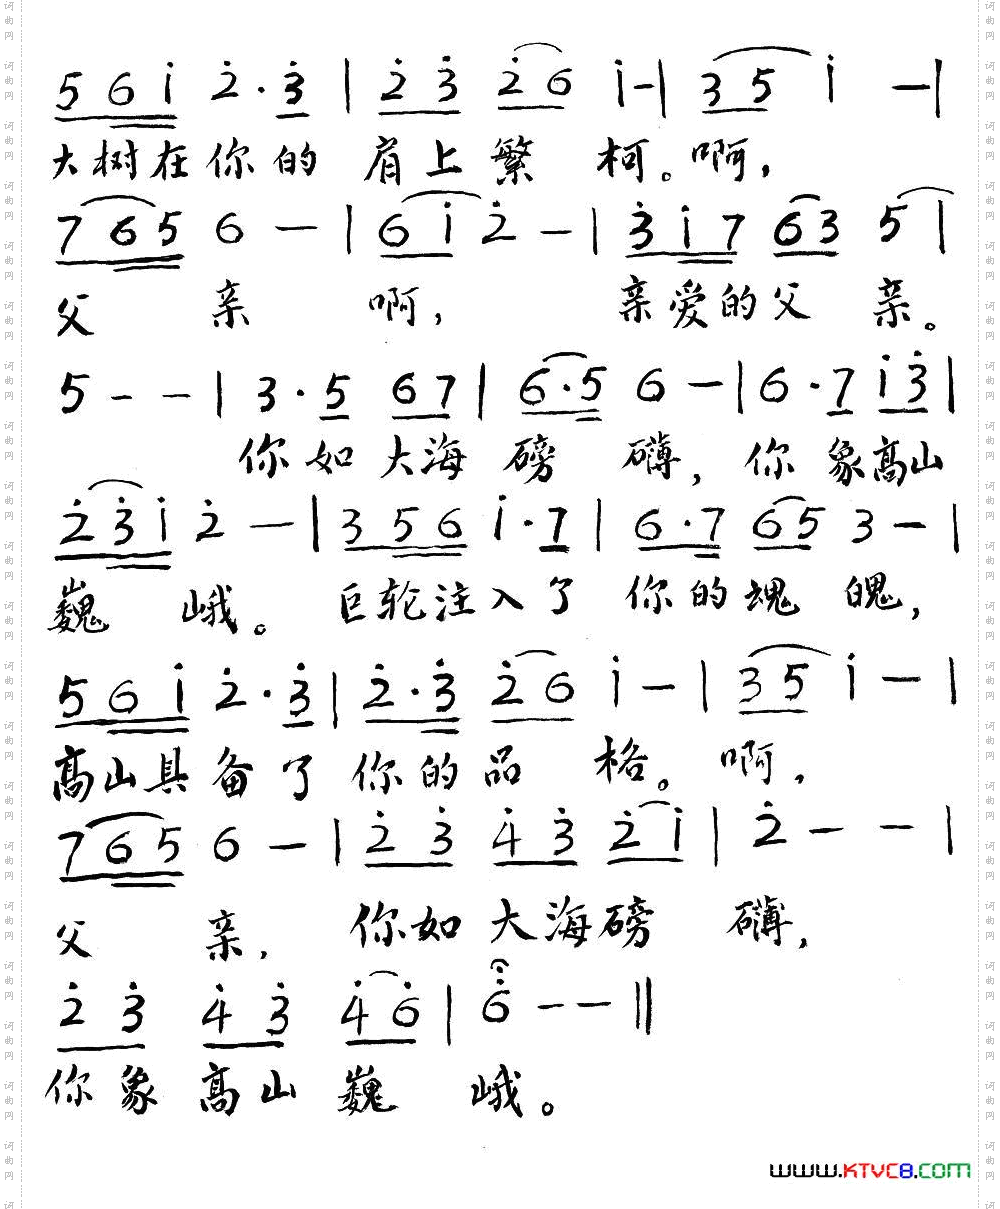 5 6 i 2 · 3 | 2 3 2 6 i - | 3 5 i — |
大树在你的 肩上繁 柯。啊,
7 6 5 6 — | 6 i 2 — | 3 i 7 6 3 5 |
父 亲 啊, 亲爱的父 亲。
5 - - | 3 · 5 6 7 | 6 · 5 6 — | 6 · 7 i 3 |
你如大海磅 礴, 你象高山
2 3 i 2 — | 3 5 6 i · 7 | 6 · 7 6 5 3 — |
巍 峨。 巨轮注入了 你的魂 魄,
5 6 i 2 · 3 | 2 · 3 2 6 i — | 3 5 i — |
高山具备了 你的品 格。 啊,
7 6 5 6 — | 2 3 4 3 2 i | 2 — - |
父 亲, 你如大海磅 礴,
2 3 4 3 4 6 | 6 — — ‖
你象高山巍 峨。
www.KTVC8.com
词曲网